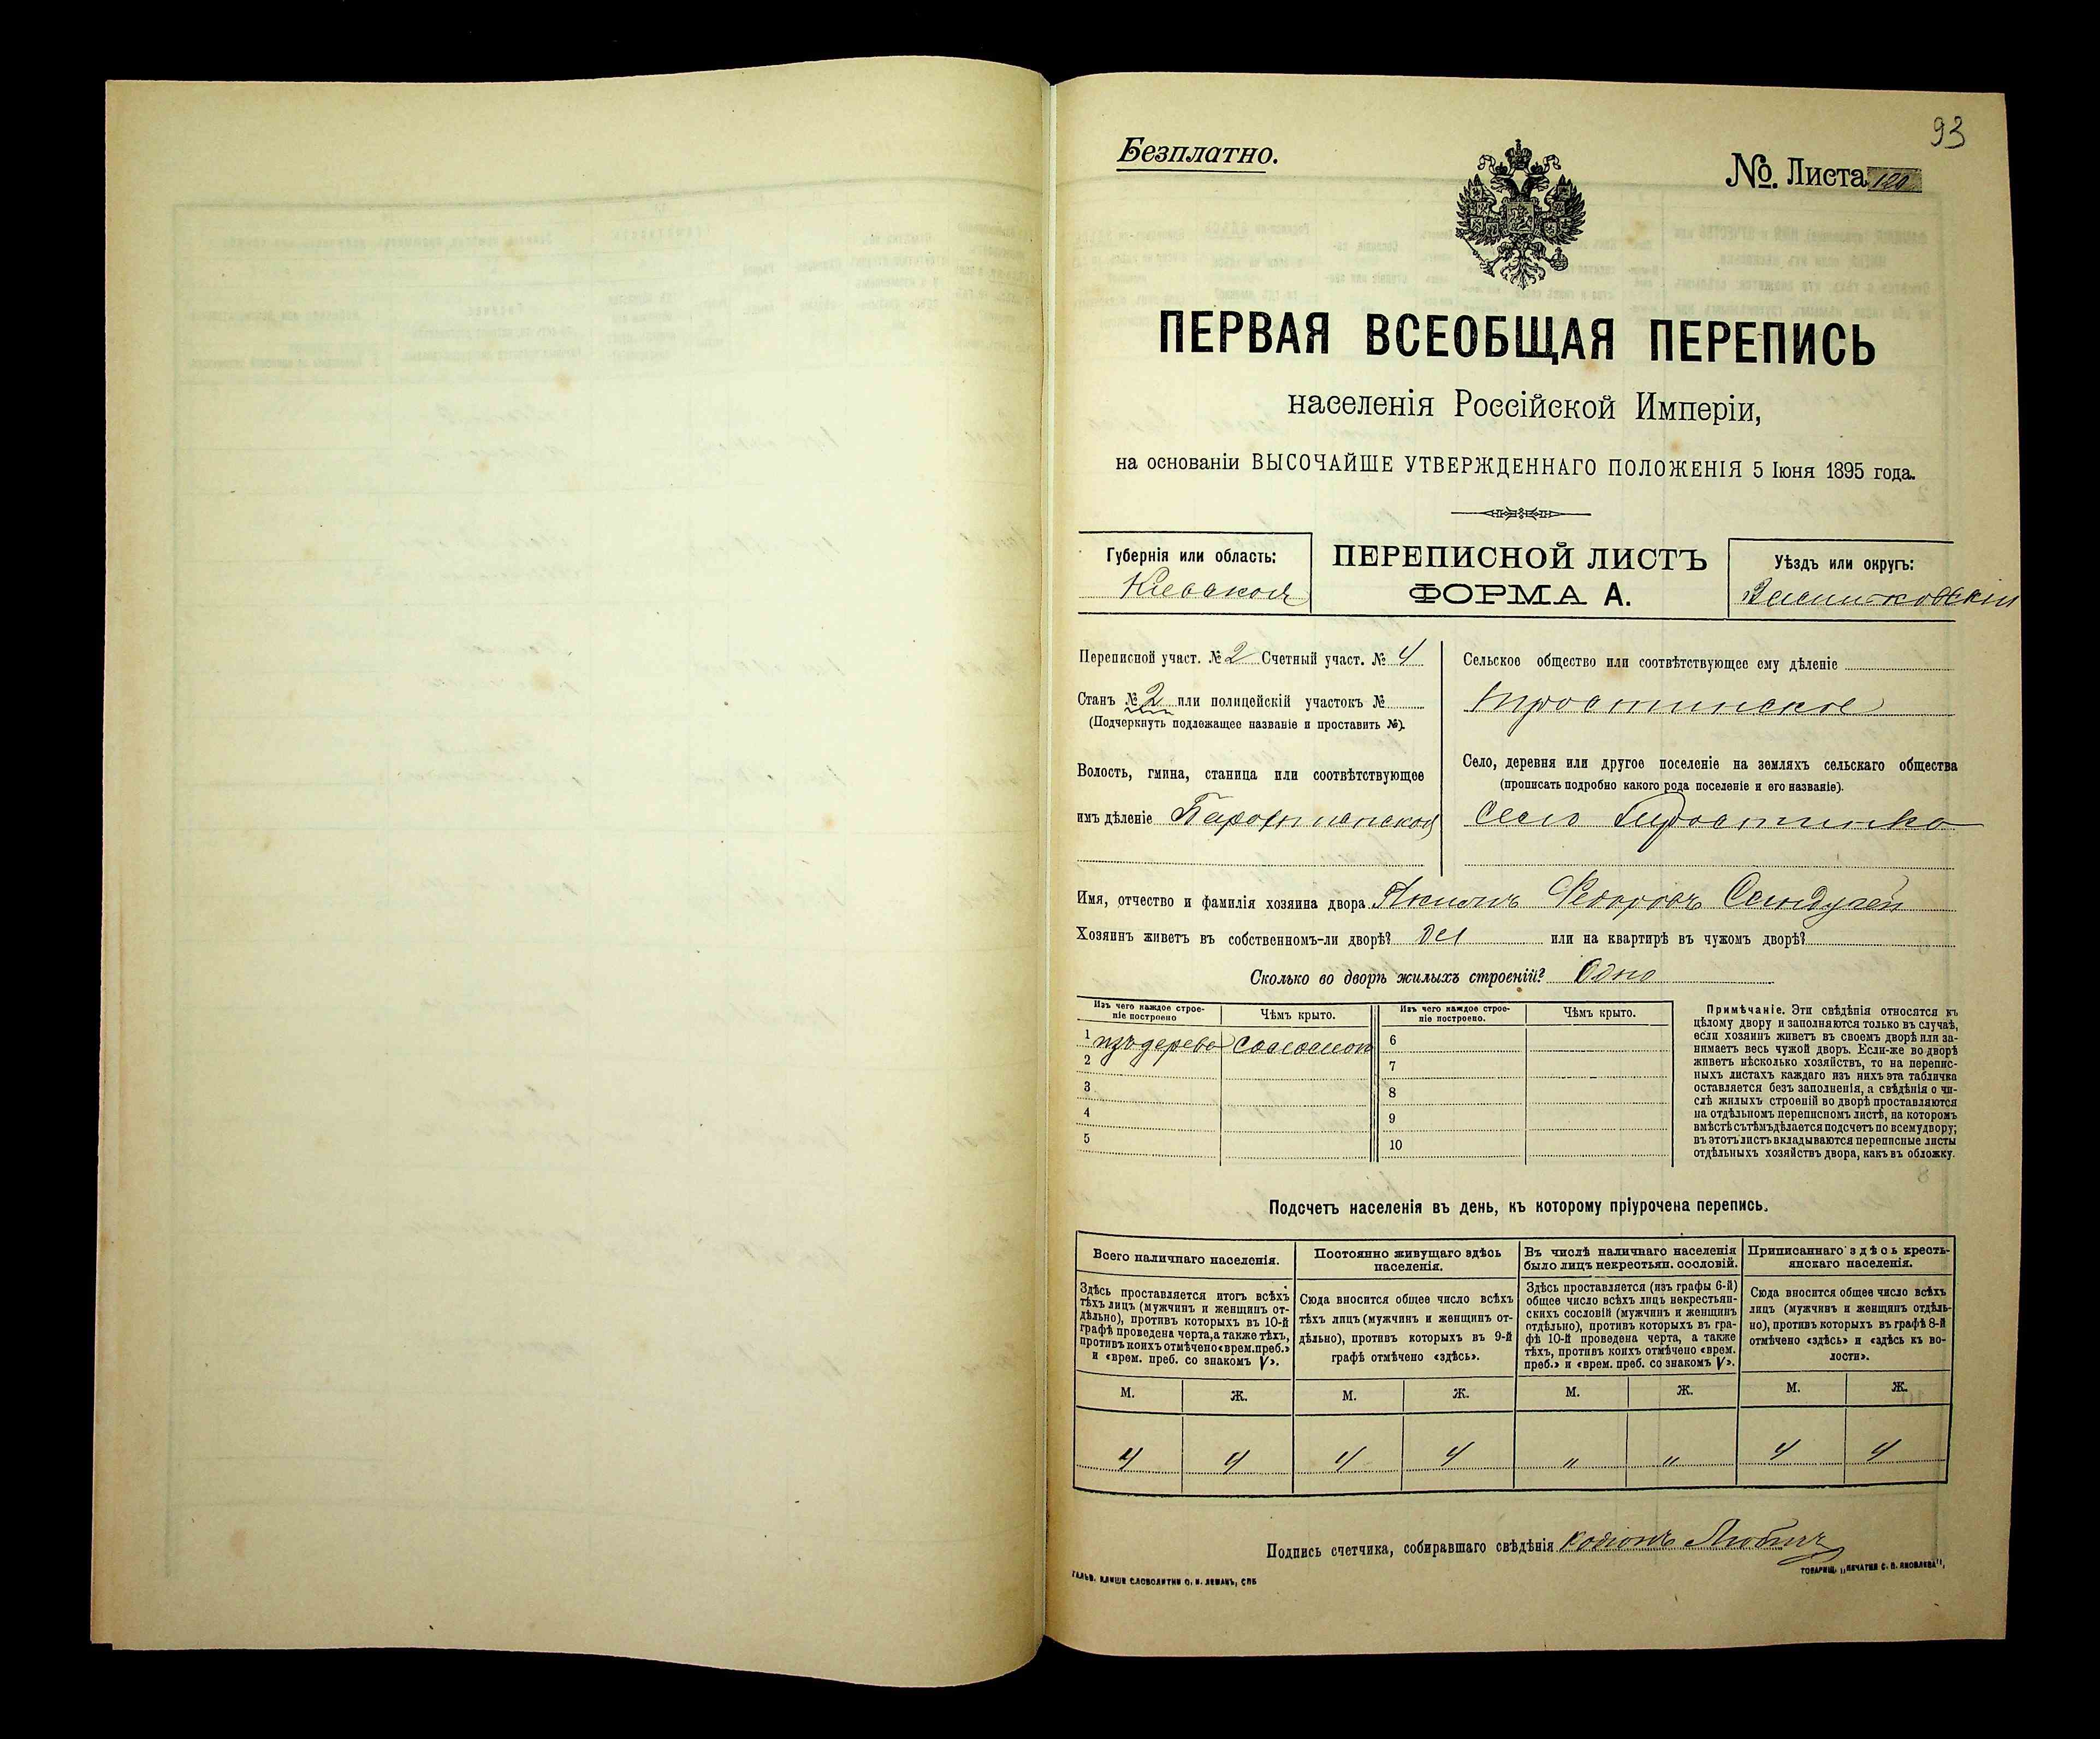 93
Безплатно.
№. Листа 120
ПЕРВАЯ ВСЕОБЩАЯ ПЕРЕПИСЬ
населенія Россійской Имперіи,
на основаніи ВЫСОЧАЙШЕ УТВЕРЖДЕННАГО ПОЛОЖЕНІЯ 5 Іюня 1895 года.
Губернія или область:
Кіевская
ПЕРЕПИСНОЙ ЛИСТЪ
ФОРМА А.
Уѣздъ или округъ:
Васильковскій
Переписной участ. № 2 Счетный участ. № 4
Станъ № 2 или полицейскій участокъ №
(Подчеркнуть подлежащее названіе и проставить №).
Волость, гмина, станица или соотвѣтствующее
имъ дѣленіе
Сельское общество или соотвѣтствующее ему дѣленіе
Тростинское
Село, деревня или другое поселеніе на земляхъ сельскаго общества
(прописать подробно какого рода поселеніе и его названіе).
Село Тростинка
Имя, отчество и фамилія хозяина двора Якимъ Федоровъ
Хозяинъ живетъ въ собственномъ-ли дворѣ? да или на квартирѣ въ чужомъ дворѣ?
Сколько во дворѣ жилыхъ строеній? Одно
Изъ чего каждое строе-
ніе построено
Чѣмъ крыто.
Изъ чего каждое строе-
ніе построено.
Чѣмъ крыто.
1 изъ дерева соломой
2
3
4
5
6
7
8
9
10
Примѣчаніе. Эти свѣдѣнія относятся къ
цѣлому двору и заполняются только въ случаѣ,
если хозяинъ живетъ въ своемъ дворѣ или за-
нимаетъ весь чужой дворъ. Если-же во дворѣ
живетъ нѣсколько хозяйствъ, то на перепис-
ныхъ листахъ каждаго изъ нихъ эта табличка
оставляется безъ заполненія, а свѣдѣнія о чи-
слѣ жилыхъ строеній во дворѣ проставляются
на отдѣльномъ переписномъ листѣ, на которомъ
вмѣстѣ съ тѣмъ дѣлается подсчетъ по всему двору;
въ этотъ листъ вкладываются переписные листы
отдѣльныхъ хозяйствъ двора, какъ въ обложку.
Подсчетъ населенія въ день, къ которому пріурочена перепись.
Всего наличнаго населенія.
Здѣсь проставляется итогъ всѣхъ
тѣхъ лицъ (мужчинъ и женщинъ от-
дѣльно), противъ которыхъ въ 10-й
графѣ проведена черта, а также тѣхъ,
противъ коихъ отмѣчено «врем. преб.»
и «врем. преб. со знакомъ V».
Постоянно живущаго здѣсь
населенія.
Сюда вносится общее число всѣхъ
тѣхъ лицъ (мужчинъ и женщинъ от-
дѣльно), противъ которыхъ въ 9-й
графѣ отмѣчено «здѣсь».
Въ числѣ наличнаго населенія
было лицъ некрестьян. сословій.
Здѣсь проставляется (изъ графы 6-й)
общее число всѣхъ лицъ некрестьян-
скихъ сословій (мужчинъ и женщинъ
отдѣльно), противъ которыхъ въ гра-
фѣ 10-й проведена черта, а также
тѣхъ, противъ коихъ отмѣчено «врем.
преб.» и «врем. преб. со знакомъ V».
Приписаннаго здѣсь кресть-
янскаго населенія.
Сюда вносится общее число всѣхъ
лицъ (мужчинъ и женщинъ отдѣль-
но), противъ которыхъ въ графѣ 8-й
отмѣчено «здѣсь» и «здѣсь къ во-
лости».
М. Ж. М. Ж. М. Ж. М. Ж.
4 4 4 4 " " 4 4
Подпись счетчика, собиравшаго свѣдѣнія
ГАЛЬВ. КЛИШЕ СЛОВОЛИТНИ О. И. ЛЕМАНЪ, СПБ
ТОВАРИЩ. „ПЕЧАТНЯ С. П. ЯКОВЛЕВА",